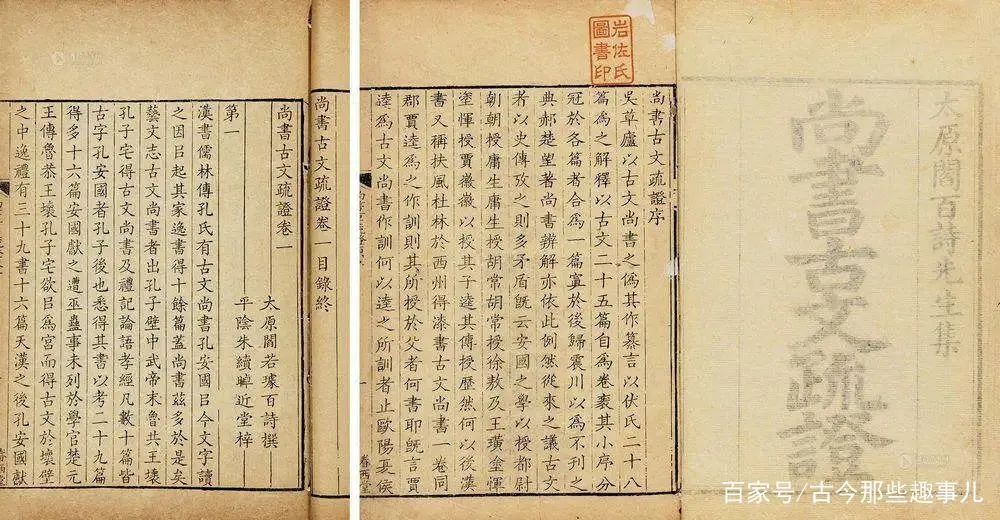 太原閻百詩先生集
尚書古文疏證
岩佐氏
圖書印
尚書古文疏證序
吳草廬以古文尚書之僞其作纂言以伏氏二十八
篇為之解釋以古文二十五篇自為卷袠其小序分
冠於各篇者合為一篇寘於後歸震川以為不刊之
典郝楚望著尚書辨解亦依此例然從來之議古文
者以史傳攷之則多矛盾既云安國之學以授都尉
朝朝授庸生庸生授胡常胡常授徐敖及王璜塗惲
塗惲授賈徽徽以授其子逵其傳授歷然何以後漢
書又稱扶風杜林於西州得漆書古文尚書一卷同
郡賈逵為之作訓則其所授於父者何書耶既言賈
逵為古文尚書作訓何以逵之所訓者止歐陽夏侯
眷西堂
尚書古文疏證卷一目錄終
尚書古文疏證卷一
太原閻若璩百詩撰
平陰朱續晫近堂梓
第一
漢書儒林傳孔氏有古文尚書孔安國㠯今文字讀
之因㠯起其家逸書得十餘篇蓋尚書茲多於是矣
藝文志古文尚書者出孔子壁中武帝末魯共王壞
孔子宅得古文尚書及禮記論語孝經凡數十篇皆
古字孔安國者孔子後也悉得其書以考二十九篇
得多十六篇安國獻之遭巫蠱事未列於學官楚元
王傳魯恭王壞孔子宅欲㠯為宮而得古文於壞壁
之中逸禮有三十九書十六篇天漢之後孔安國獻
眷西堂
百家号/古今那些趣事儿